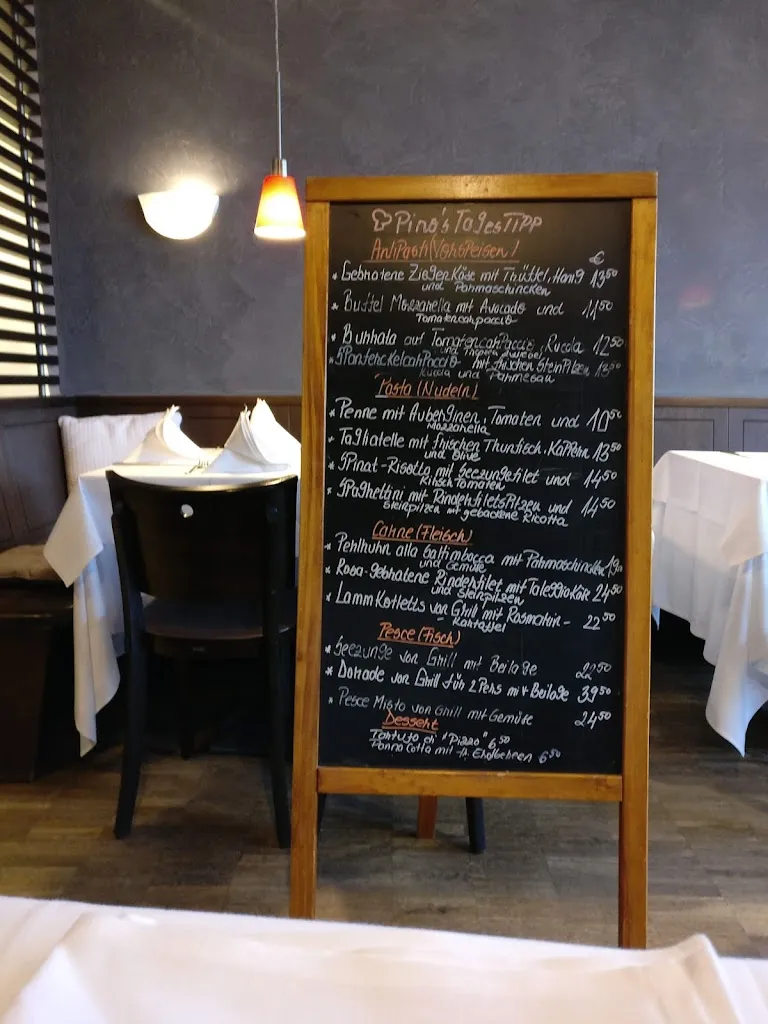 Pino's TagesTIPP
AntiPasti (Vorspeisen)
€
* Gebratene ZiegenKäse mit Trüffel, Honig 13,50
und Parmaschincken
* Buffel Mozzarella mit Avocado und 11,50
Tomatencarpaccio
* Burrata auf Tomatencarpaccio, Rucola 12,50
und Tropea zwiebel
* mit frischen SteinPilzen
Rucola und Parmesan
Pasta (Nudeln)
* Penne mit Auberginen, Tomaten und 10,50
Mozzarella
* Tagliatelle mit frischen Thunfisch, Kappern 13,50
und Olive
* SPinat-Risotto mit Seezungefilet und 14,50
KirschTomaten
* SPaghettini mit RinderfiletsPitzen und 14,50
Steinpilzen mit gebackene Ricotta
Carne (Fleisch)
* Perlhuhn alla Saltimbocca mit Parmaschincken
und Gemüse
* Rosa-gebratene Rinderfilet mit TaleggioKäse 24,50
und Steinpilzen
* Lamm Kotletts von Grill mit Rosmarin- 22,50
Kartoffel
Pesce (Fisch)
* Seezunge von Grill mit Beilage 22,50
* Dorade von Grill für 2 Pers mit Beilage 39,50
* Pesce Misto von Grill mit Gemüse 24,50
Dessert
Tartufo di "Pizzo" 6,50
Panna Cotta mit Erdbeeren 6,50